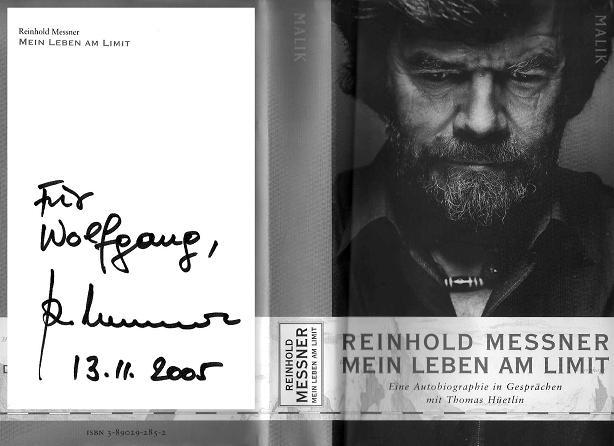 Reinhold Messner
MEIN LEBEN AM LIMIT
Für
Wolfgang,
13.11.2005
ISBN 3-89029-285-2
MALIK
REINHOLD
MESSNER
MEIN LEBEN AM LIMIT
MALIK
REINHOLD MESSNER
MEIN LEBEN AM LIMIT
Eine Autobiographie in Gesprächen
mit Thomas Hüetlin